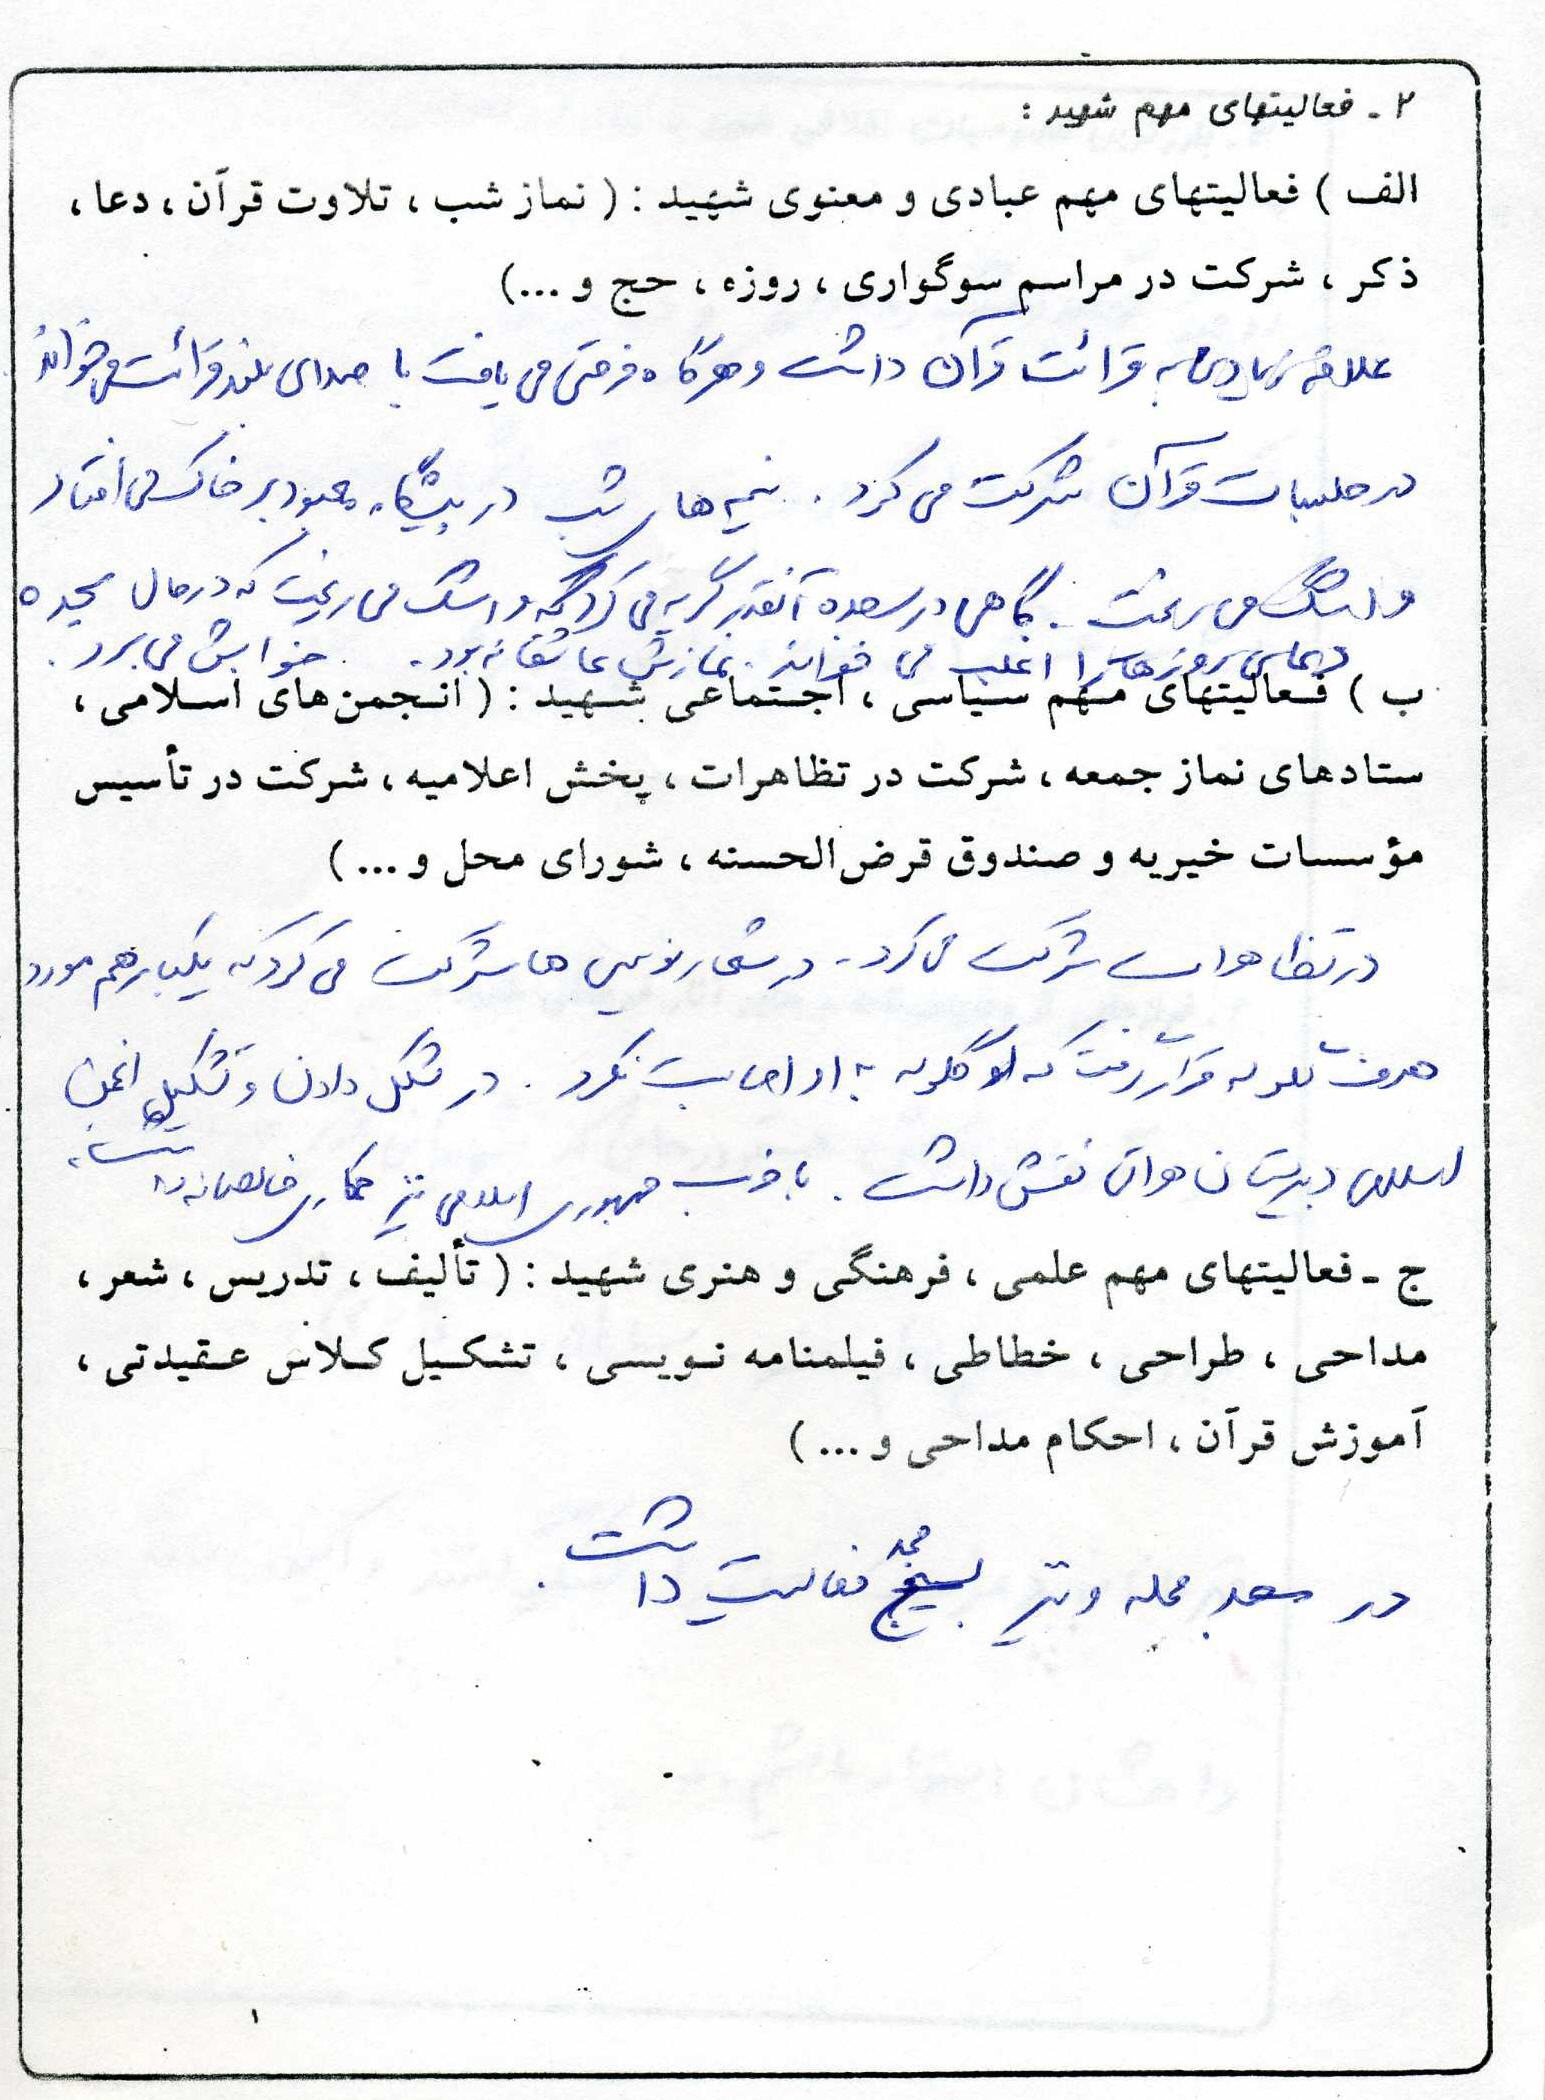 ۲ - فعالیتهای مهم شهید :
الف ) فعالیتهای مهم عبادی و معنوی شهید : ( نماز شب ، تلاوت قرآن ، دعا ،
ذکر ، شرکت در مراسم سوگواری ، روزه ، حج و ...)
علاقه زیادی به قرائت قرآن داشت و هرگاه فرصتی می یافت با صدای بلند قرائت می خواند
در جلسات قرآن شرکت می کرد . نیمه های شب در پیشگاه معبود بر خاک می افتاد
و اشک می ریخت . گاهی در سجده آنقدر گریه می کرد که و اشک می ریخت که در حال سجده
خوابش می برد .
دعای روزها را اغلب می خواند . نمازش عاشقانه بود .
ب ) فعالیتهای مهم سیاسی ، اجتماعی شهید : ( انجمن‌های اسلامی ،
ستادهای نماز جمعه ، شرکت در تظاهرات ، پخش اعلامیه ، شرکت در تأسیس
مؤسسات خیریه و صندوق قرض‌الحسنه ، شورای محل و ... )
در تظاهرات شرکت می کرد - در شعار نویسی ها شرکت می کرد که یکبار هم مورد
هدف گلوله قرار گرفت که گلوله به او اصابت نکرد . در شکل دادن و تشکیل انجمن
اسلامی دبیرستان نقش داشت . با حزب جمهوری اسلامی نیز همکاری خالصانه داشت
ج - فعالیتهای مهم علمی ، فرهنگی و هنری شهید : ( تألیف ، تدریس ، شعر ،
مداحی ، طراحی ، خطاطی ، فیلمنامه نویسی ، تشکیل کلاس عقیدتی ،
آموزش قرآن ، احکام مداحی و ... )
در مسجد محله و نیز بسیج فعالیت داشت .
۱